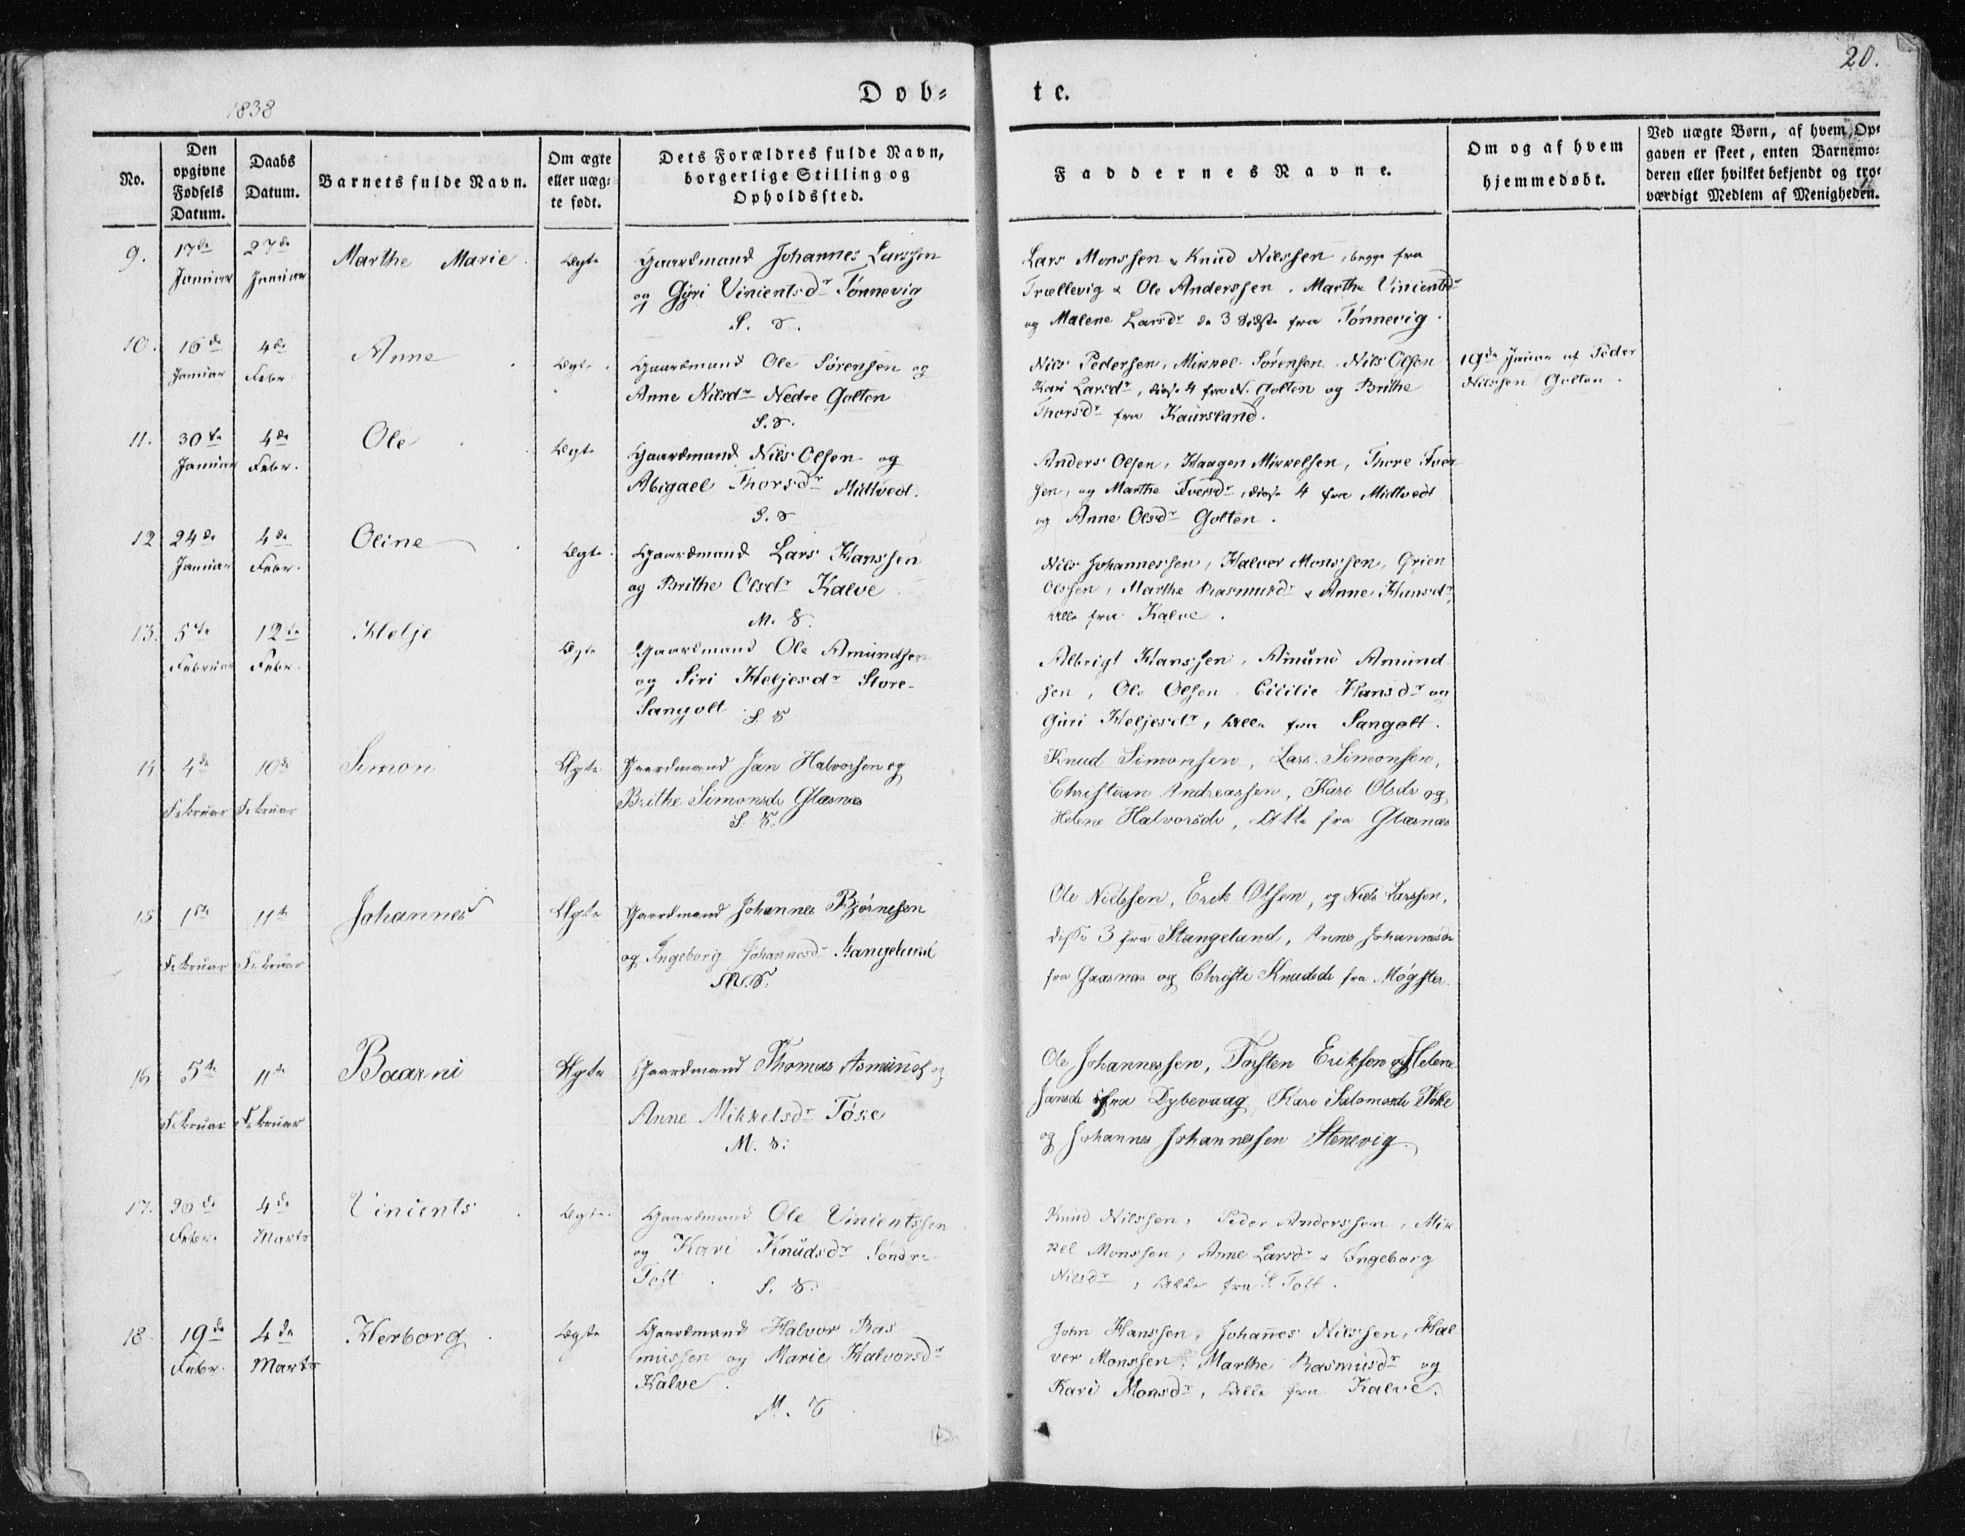 20.
1838
Døb- te.
No.
Den opgivne Fødsels Datum.
Daabs Datum.
Barnets fulde Navn.
Om ægte eller uæg- te født.
Dets Forældres fulde Navn, borgerlige Stilling og Opholdssted.
Faddernes Navne.
Om og af hvem hjemmedøbt.
Ved uægte Børn, af hvem Op- gaven er skeet, enten Barnemo- deren eller hvilket bekjendt og tro- værdigt Medlem af Menigheden.
9. 17de Januar 27de Januar Marthe Marie Ægte
Gaardmand Johannes Larssen
og Gyri Vincentsdr Tønnevig
S. S.
Lars Monssen & Knud Nilssen, begge fra
Trællevig & Ole Anderssen, Marthe Vincentsdr
og Malene Larsdr de 3 sidste fra Tønnevig.
10. 16de Januar 4de Febr. Anne Ægte
Gaardmand Ole Sørensen og
Anne Nilsdr Nedre Golten
S. S.
Nils Pedersen, Mikkel Sørensen, Nils Olsen
Kari Larsdr, disse 4 fra N. Golten og Brithe
Thorsdr fra Kaursland.
19de Januar af Peder
Nilssen Golten.
11. 30te Januar 4de Febr. Ole Ægte
Gaardmand Nils Olsen og
Abigael Thorsdr Midtvedt.
S. S
Anders Olsen, Haagen Mikkelsen, Thore Iver
sen, og Marthe Iversdr, disse 4 fra Midtvedt
og Anne Olsdr Golten.
12 24de Januar 4de Febr. Oline Ægte
Gaardmand Lars Hanssen
og Brithe Olsdr Kalve
M. S.
Nils Johannessen, Halver Monssen,
Olssen, Marthe Rasmusdr & Anne Hansdr,
alle fra Kalve.
13. 5te Februar 12te Febr. Helje Ægte
Gaardmand Ole Amundsen
og Siri Heljesdr Store-
Sangolt
S. S
Albrigt Hanssen, Amund Amund
sen, Ole Olsen, Cicilie Hansdr og
Guri Heljesdr, alle fra Sangolt.
14 4de Februar 10de Februar Simon Ægte
Gaardmand Jan Halvorsen og
Brithe Simonsdr Glæsnes
S. S.
Knud Simonsen, Lars Simonsen,
Christian Andreassen, Kari Olsdr og
Helene Halvorsdr, Alle fra Glæsnes
15 1ste Februar 11te Februar Johannes Ægte
Gaardmand Johannes Bjørnesen
og Ingeborg Johannesdr Stangeland
M. S.
Ole Nielssen, Erik Olsen, og Niels Larssen,
disse 3 fra Stangeland, Anne Johannesdr
fra og Christi Knudsdr fra Møgster.
16 5te Februar 11te Februar Baarni Ægte
Gaardmand Thomas Asmunds og
Anne Mikkelsdr Føse
M. S.
Ole Johannessen, Torsten Eriksen og Helene
Jansdr fra Dybevaag, Kari Salomonsdr
og Johannes Johannessen Stenevig.
17. 26de Febr. 4de Marts Vincents Ægte
Gaardmand Ole Vincentssen
og Kari Knudsdr Søndre
Toft.
S. S.
Knud Nilssen, Peder Anderssen, Mik
kel Monssen, Anne Larsdr & Ingeborg
Nilsdr, Alle fra S. Toft.
18 19de Febr. 4de Marts Herborg Ægte
Gaardmand Halvor Ras
mussen og Marie Halvorsdr
Kalve.
M. S
John Hanssen, Johannes Nilssen, Hal
ver Monssen, Marthe Rasmusdr og
Kari Monsdr, Alle fra Kalve.